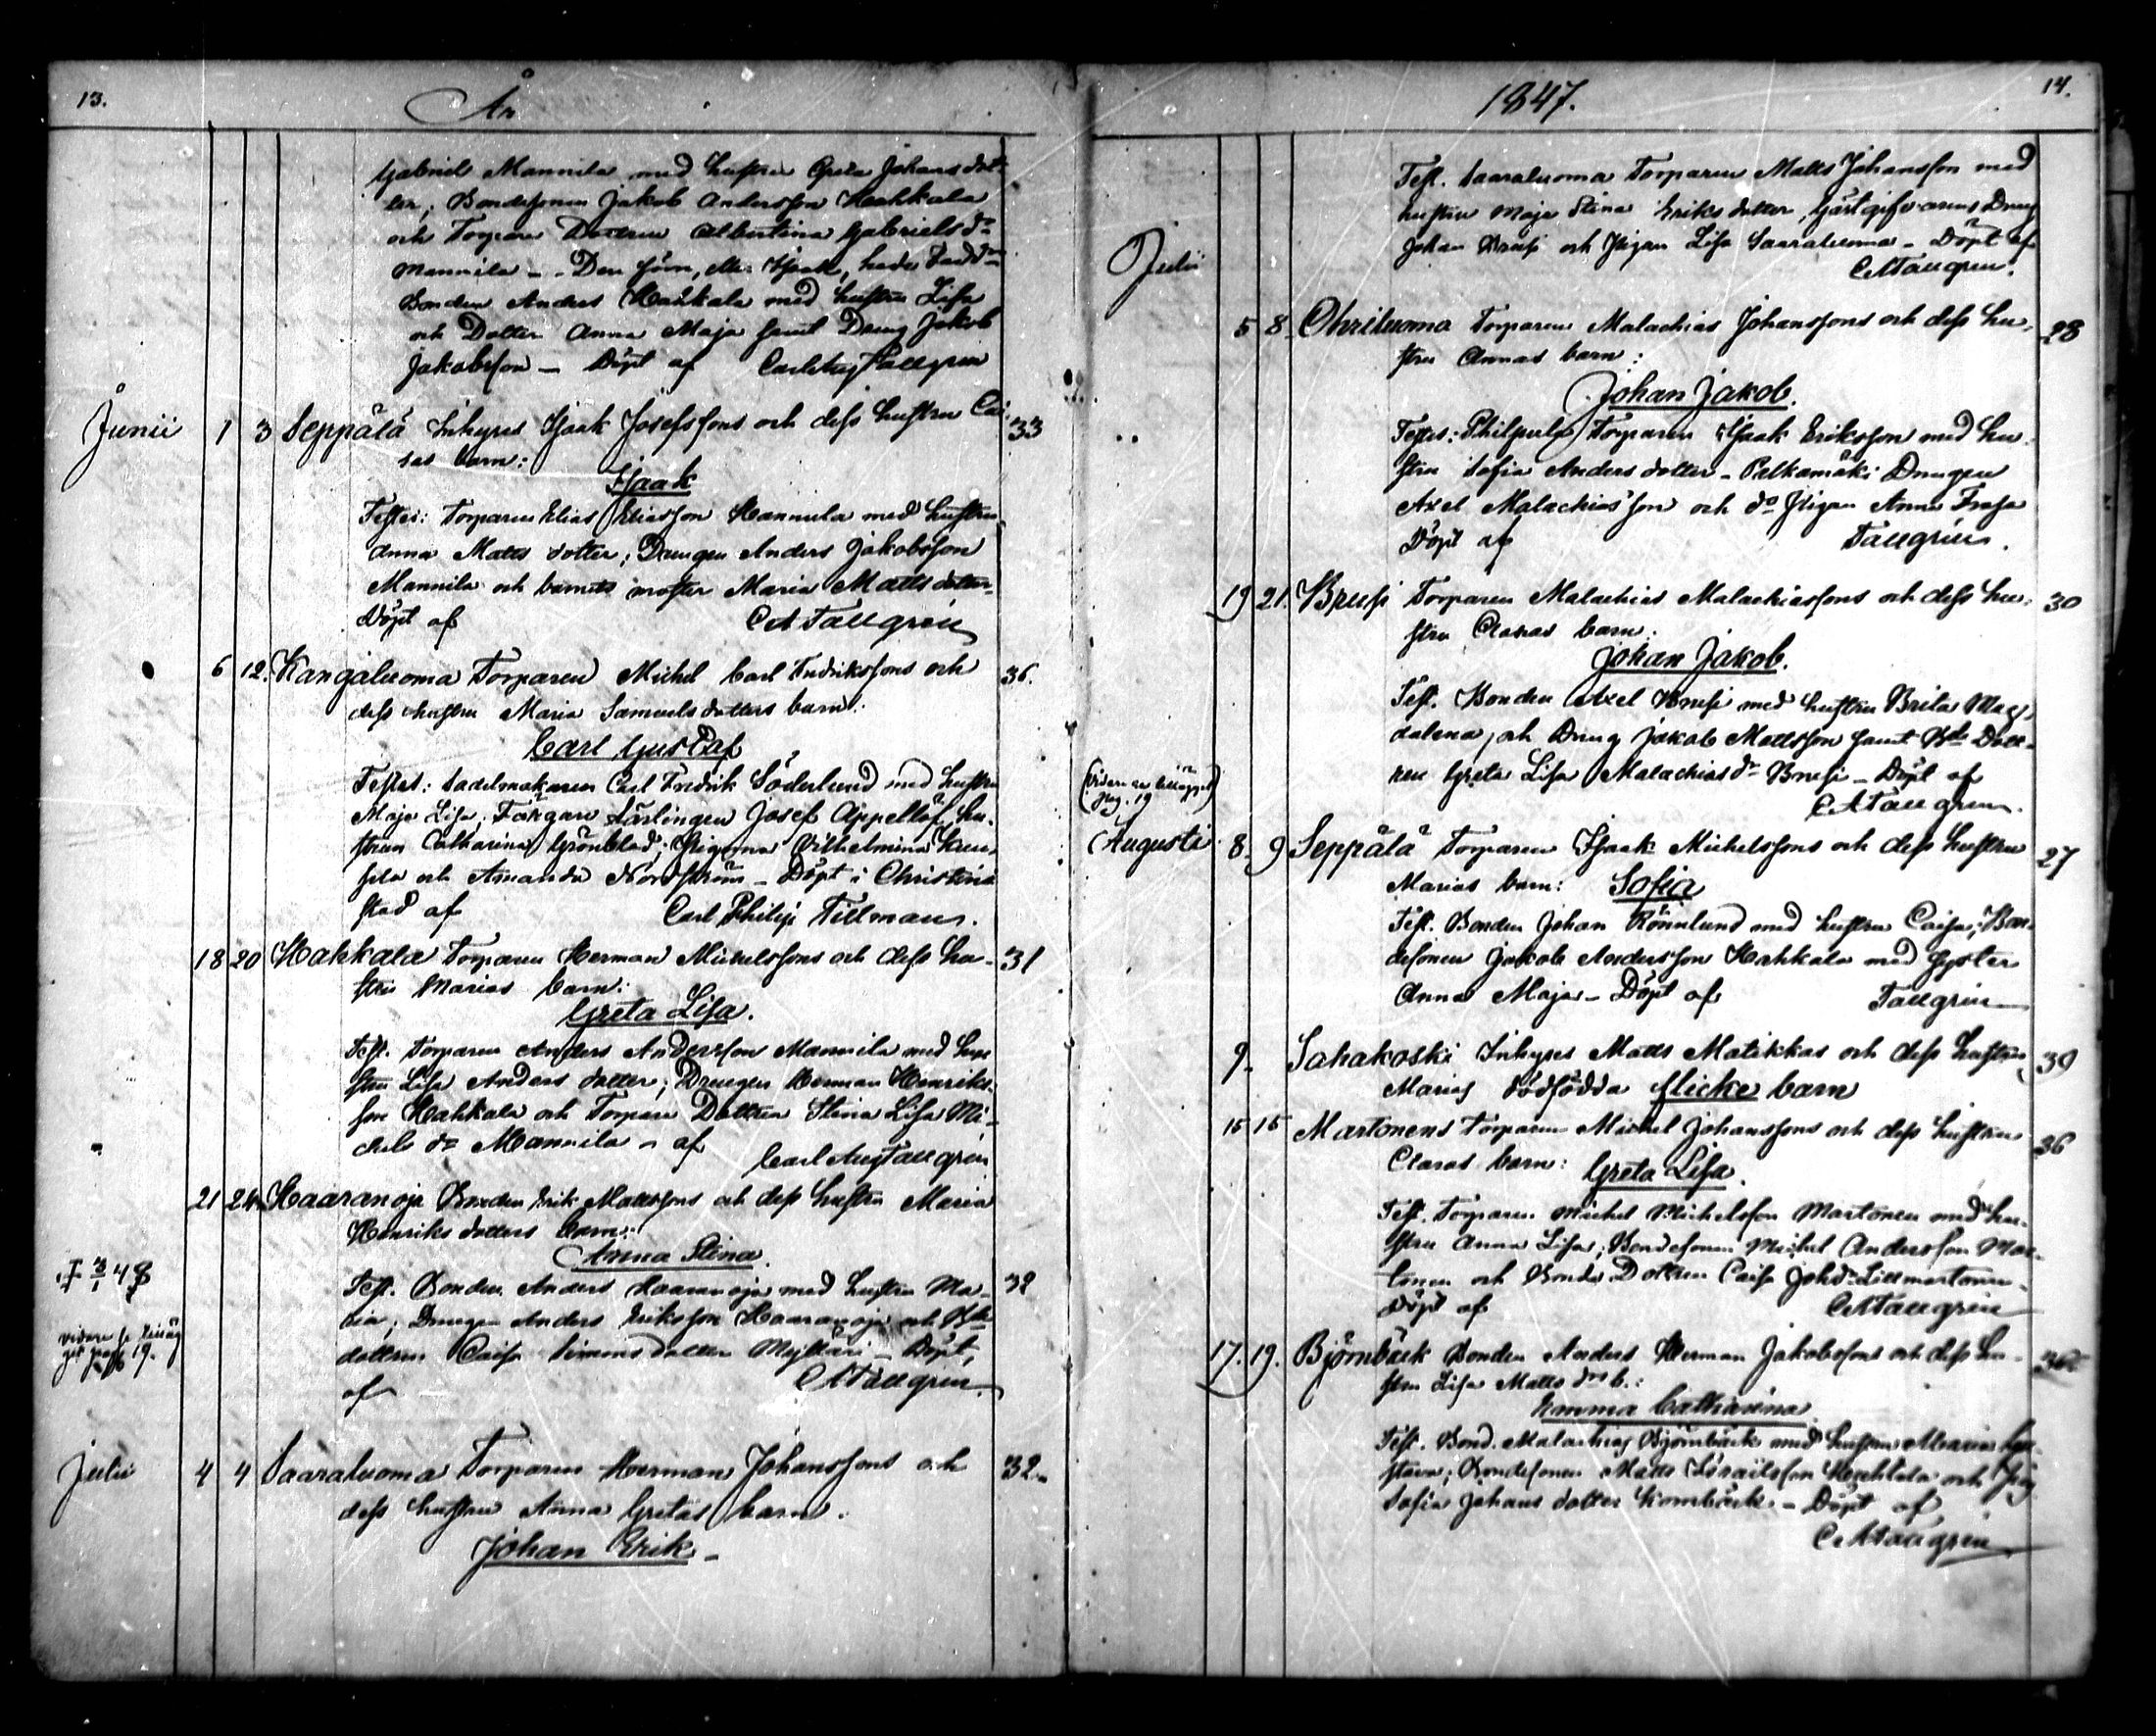 13.
År
Gabriel Mannila med hustru Greta Johans dot-
ter; Bondesonen Jakob Andersson Hahkala
och Torpare Dottren Albertina Gabriels dr
Mannila - Den förn, eller Isaak, hade Fadd
Bonden Anders Hahkala med hustru Lisa
och Dotter Anna Maja samt Dreng Jakob
Jakobsson - Döpt af Carl Aug Tallgren
Junii 1 3 Seppälä Inhyses Isaak Josefssons och dess hustru Cai- 33
sas barn:
Isaak
Testes: Torparen Elias Eliasson Hannula med hustru
Anna Matts dotter; Drengen Anders Jakobsson
Mannila och barnets moster Maria Matts dotter
Döpt af CATallgrén
6 12. Kangasluoma Torparen Michel Carl Fredrikssons och 36.
dess hustru Maria Samuelsdotters barn:
Carl Gustaf
Testes: Sadelmakaren Carl Fredrik Söderlund med hustru
Maja Lisa; Färgare Lärlingen Josef Appellöf, hu-
strun Catharina Grönblad; Pigorna Vilhelmina
och Amanda Nordström - Döpt i Christine
stad af Carl Philip Tillman.
18 20 Hahkala Torparen Herman Michelssons och dess hu- 31
stru Marias barn:
Greta Lisa.
Test. Torparen Anders Andersson Mannila med hu-
stru Lisa Anders dotter; Drengen Herman Henriks-
son Hahkala och Torpare Dottren Stina Lisa Mi-
chels dr Mannila - af Carl Aug Tallgren
21 24 Haaranoja Bonden Erik Mattssons och dess hustru Maria
Henriks dotters barn:
Anna Stina.
Test. Bonden Anders Haaranoja med hustru Ma- 32
ria; Drengen Anders Eriksson Haaranoja och Bde
dottren Caisa Simons dotter Myllari - Döpt
af CATallgren
† 3/1 48
vidare se tilläg
get pag 19.
Julii 4 4 Saaraluoma Torparen Herman Johanssons och 32
dess hustru Anna Gretas barn.
Johan Erik -
1847.
14.
Test. Saaraluoma Torparen Matts Johansson med
hustru Maja Stina Eriks dotter, Gästgifvarens Dreng
Johan Brusi och Pigan Lisa Saaraluoma - Döpt af
CATallgren.
Julii
5 8 Ohriluoma Torparen Malachias Johanssons och dess hu- 28
stru Annas barn:
Johan Jakob.
Testes: Torparen Isaak Eriksson med hu-
stru Sofia Anders dotter - Palkamäki Drengen
Axel Malachiasson och do Pigan Anna
Döpt af Tallgrén.
19 21. Brusi Torparen Malachias Malachiassons och dess hu- 30
stru Claras barn:
Johan Jakob.
Test. Bonden Axel Brusi med hustru Brita Mag-
dalena, och Dreng Jakob Mattsson samt Bde Dott-
ren Greta Lisa Malachias dr Brusi - Döpt af
CATallgren.
(Vidare se tillägget
pag. 19)
Augusti 8. 9 Seppälä Torparen Isaak Michelssons och dess hustru 27
Marias barn: Sofia
Test. Bonden Johan Rönnlund med hustru Caisa; Bon-
desonen Jakob Andersson Hahkala med syster
Anna Maja - Döpt af Tallgrén
9. Sahakoski Inhyses Matts Matikkas och dess hustru 39
Marias dödfödda flicke barn
15 15 Martonens Torparen Michel Johanssons och dess hustru 36
Claras barn: Greta Lisa.
Test. Torparen Michel Michelsson Martonen med hu-
stru Anna Lisa; Bondesonen Michel Andersson Mar-
tonen och Bonde Dottren Caisa Joh dr Lillmartonen
Döpt af CATallgren
17. 19. Björnbäck Bonden Anders Herman Jakobssons och dess hu- 36
stru Lisa Matts drs b.:
Emma Catharina
Test. Bond. Malachias Björnbäck med hustru Maria Gu-
stava; Bondesonen Matts Israelsson och Pig
Sofia Johans dotter Björnbäck. - Döpt af
CATallgren